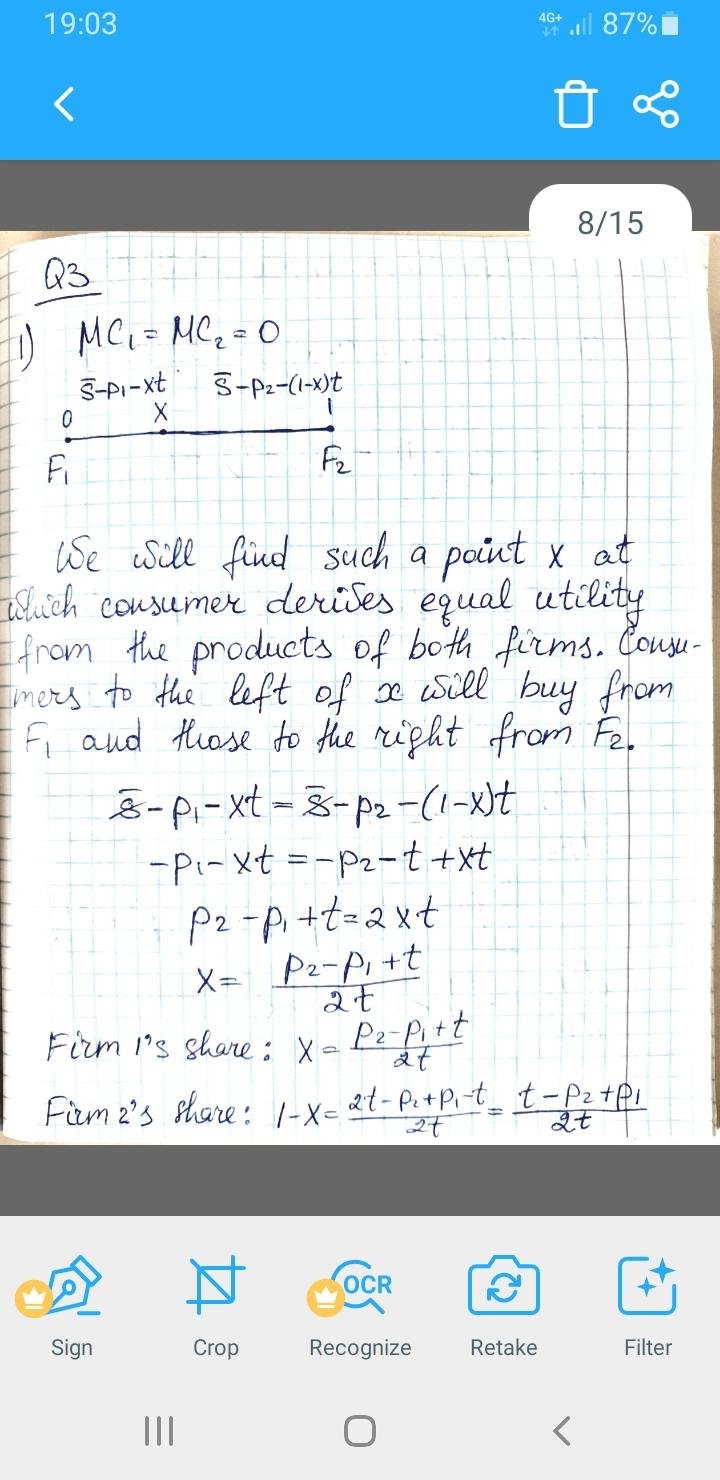 19:03 4G+ 87%
8/15
Q3
1) MC₁ = MC₂ = 0
s̄-p₁-xt s̄-p₂-(1-x)t
0 x 1
F₁ F₂
We will find such a point x at
which consumer derives equal utility
from the products of both firms. Consu-
mers to the left of x will buy from
F₁ and those to the right from F₂.
s̄-p₁-xt = s̄-p₂-(1-x)t
-p₁-xt = -p₂-t+xt
p₂-p₁+t=2xt
x= p₂-p₁+t / 2t
Firm 1's share: x= p₂-p₁+t / 2t
Firm 2's share: 1-x= 2t-p₂+p₁-t / 2t = t-p₂+p₁ / 2t
Sign Crop OCR Recognize Retake Filter